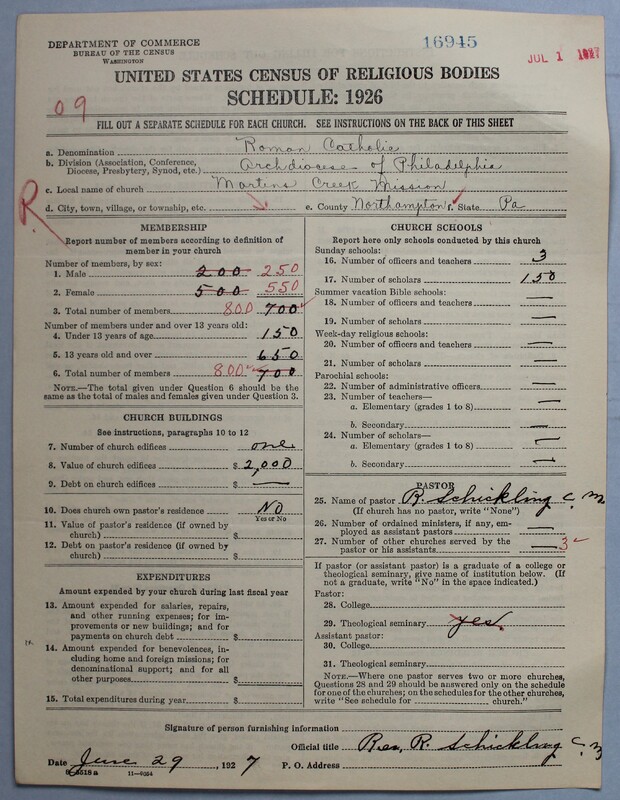 DEPARTMENT OF COMMERCE
BUREAU OF THE CENSUS
WASHINGTON
16945
JUL 1 1927
UNITED STATES CENSUS OF RELIGIOUS BODIES
SCHEDULE: 1926
09
FILL OUT A SEPARATE SCHEDULE FOR EACH CHURCH. SEE INSTRUCTIONS ON THE BACK OF THIS SHEET
a. Denomination Roman Catholic
b. Division (Association, Conference, Diocese, Presbytery, Synod, etc.) Archdiocese of Philadelphia
c. Local name of church Martins Creek Mission
d. City, town, village, or township, etc. e. County Northampton f. State Pa
R
MEMBERSHIP
Report number of members according to definition of member in your church
Number of members, by sex:
1. Male 200 250
2. Female 500 550
3. Total number of members 800 700
Number of members under and over 13 years old:
4. Under 13 years of age 150
5. 13 years old and over 650
6. Total number of members 800 700
NOTE.—The total given under Question 6 should be the same as the total of males and females given under Question 3.
CHURCH BUILDINGS
See instructions, paragraphs 10 to 12
7. Number of church edifices one
8. Value of church edifices $ 2,000
9. Debt on church edifices $ —
10. Does church own pastor's residence No
Yes or No
11. Value of pastor's residence (if owned by church) $
12. Debt on pastor's residence (if owned by church) $
EXPENDITURES
Amount expended by your church during last fiscal year
13. Amount expended for salaries, repairs, and other running expenses; for improvements or new buildings; and for payments on church debt $
14. Amount expended for benevolences, including home and foreign missions; for denominational support; and for all other purposes $
15. Total expenditures during year $
CHURCH SCHOOLS
Report here only schools conducted by this church
Sunday schools:
16. Number of officers and teachers 3
17. Number of scholars 150
Summer vacation Bible schools:
18. Number of officers and teachers —
19. Number of scholars —
Week-day religious schools:
20. Number of officers and teachers —
21. Number of scholars —
Parochial schools:
22. Number of administrative officers —
23. Number of teachers—
a. Elementary (grades 1 to 8) —
b. Secondary —
24. Number of scholars—
a. Elementary (grades 1 to 8) —
b. Secondary —
PASTOR
25. Name of pastor R. Schickling C. M
(If church has no pastor, write "None")
26. Number of ordained ministers, if any, employed as assistant pastors —
27. Number of other churches served by the pastor or his assistants — 3
If pastor (or assistant pastor) is a graduate of a college or theological seminary, give name of institution below. (If not a graduate, write "No" in the space indicated.)
Pastor:
28. College
29. Theological seminary yes.
Assistant pastor:
30. College
31. Theological seminary
NOTE.—Where one pastor serves two or more churches, Questions 28 and 29 should be answered only on the schedule for one of the churches; on the schedules for the other churches, write "See schedule for church."
Signature of person furnishing information
Official title Rev. R. Schickling C. M
Date June 29, 1927 P. O. Address
11—9034